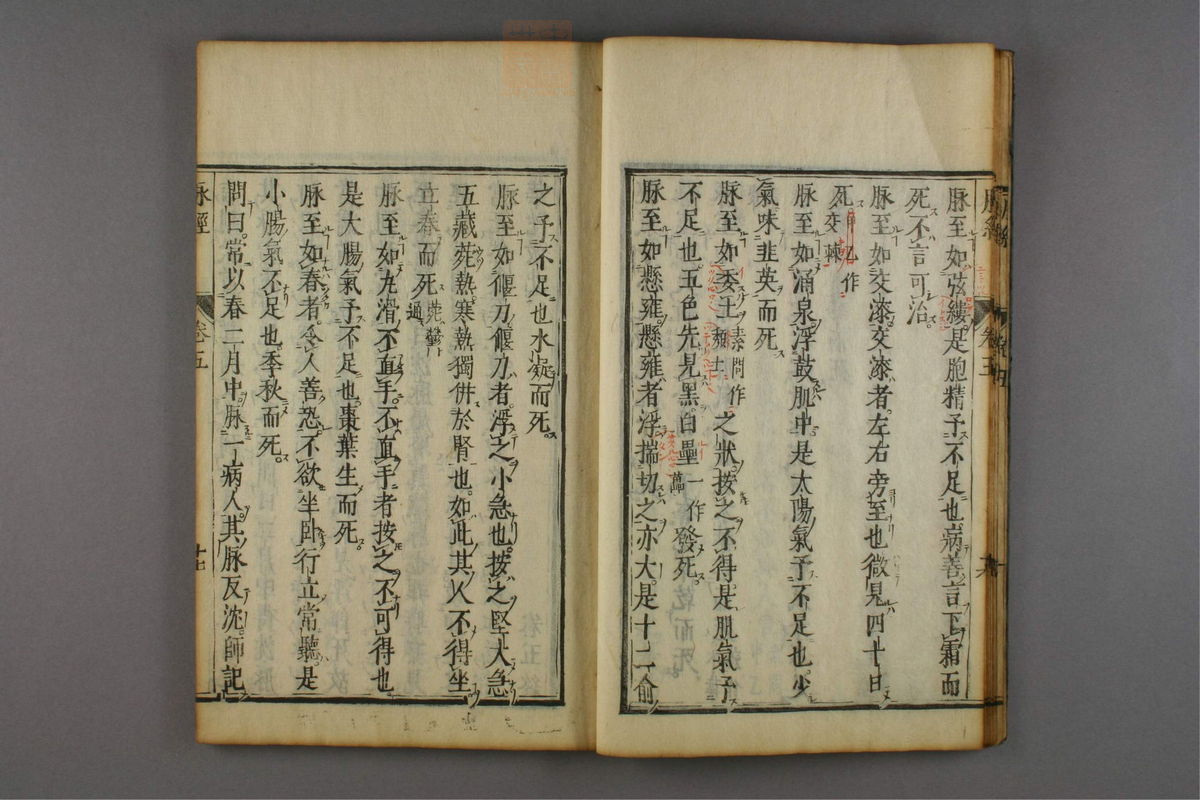 脉至如弦縷是胞精予不足也病善言下霜而
死不言可治
脉至如交漆交漆者左右旁至也微見四十日
死甲乙作交棘
脉至如涌泉浮鼓肌中是太陽氣予不足也少
氣味韭英而死
脉至如委土素問作頹土之狀按之不得是肌氣予
不足也五色先見黑白壘一作藟發死
脉至如懸雍懸雍者浮揣切之亦大是十二俞
之予不足也水凝而死
脉至如偃刀偃刀者浮之小急也按之堅大急
五藏菀熱寒熱獨併於腎也如此其人不得坐
立春而死
脉至如丸滑不直手不直手者按之不可得也
是大腸氣予不足也棗葉生而死
脉至如春者令人善恐不欲坐臥行立常聽是
小腸氣不足也季秋而死
問曰常以春二月中脉一病人其脉反沈師記
脉經
卷五